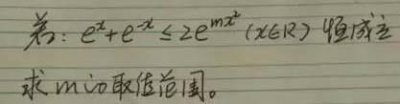 若：e^x+e^{-x}≤2e^{mx^2}(x∈R)恒成立
求m的取值范围。